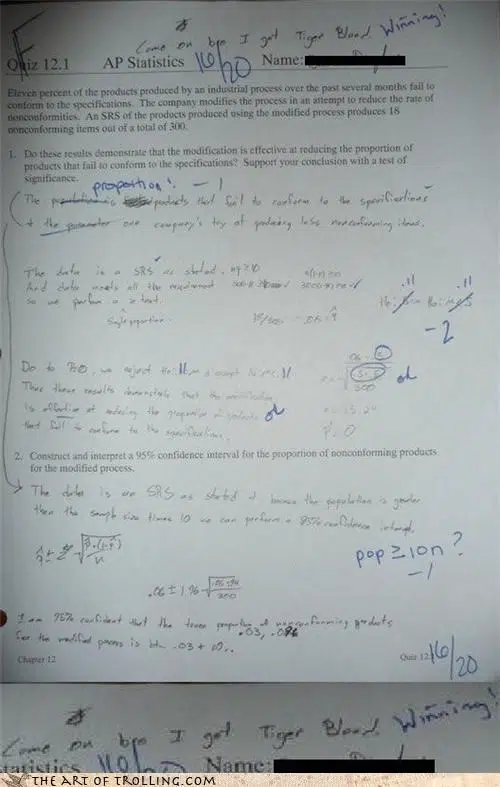 Come on bro I got Tiger Blood. Winning!
Quiz 12.1 AP Statistics 16/20 Name:
Eleven percent of the products produced by an industrial process over the past several months fail to
conform to the specifications. The company modifies the process in an attempt to reduce the rate of
nonconformities. An SRS of the products produced using the modified process produces 18
nonconforming items out of a total of 300.
1. Do these results demonstrate that the modification is effective at reducing the proportion of
products that fail to conform to the specifications? Support your conclusion with a test of
significance.
proportion! -1
The products that fail to conform to the specifications
the parameter one company's try at producing less nonconforming items.
The data is a SRS as stated.
And data meets all the requirement
so we perform a z test.
Single proportion
18/300 = .06 = p̂
.11 .11
-2
Do to P=0, we reject
Thus these results demonstrate that the modification
is effective at reducing the proportion of products ok
that fail to conform to the specifications.
300
ok
P=0
2. Construct and interpret a 95% confidence interval for the proportion of nonconforming products
for the modified process.
The data is an SRS as stated & because the population is greater
then the sample size times 10 we can perform a 95% confidence interval.
pop ≥ 10n ?
-1
.06 ± 1.96 √(.06·.94/300)
I am 95% confident that the true proportion of nonconforming products
for the modified process is btw .03 +
Chapter 12 Quiz 12 16/20
Come on bro I got Tiger Blood. Winning!
tatistics 16/20 Name:
THE ART OF TROLLING.COM